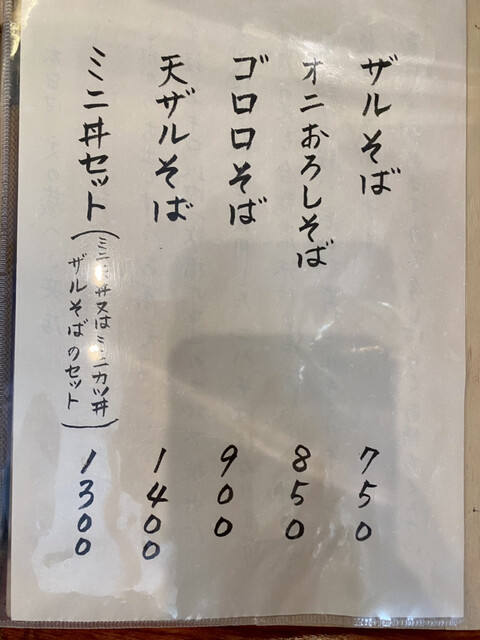 ザルそば 750
オニおろしそば 850
ゴロロそば 900
天ザルそば 1400
ミニ丼セット(ミニ天丼又はミニカツ丼
ザルそばのセット) 1300